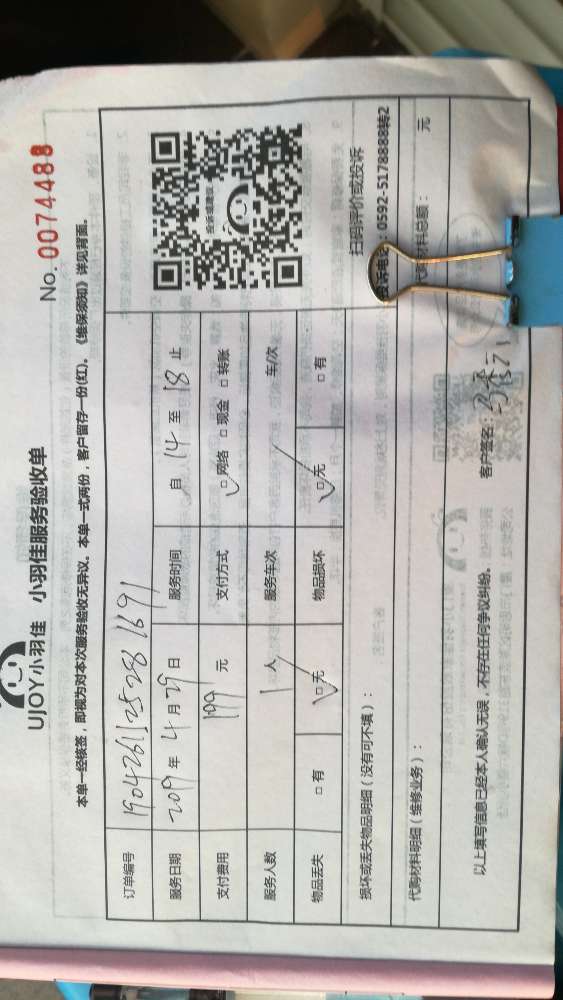 UJOY小羽佳 小羽佳服务验收单
No. 0074488
本单一经核签，即视为对本次服务验收无异议。本单一式两份，客户留存一份(红)。《维保须知》详见背面。
订单编号 1904261125281691
服务日期 2019 年 4 月 29 日 服务时间 自 14 至 18 止
支付费用 199 元 支付方式 □ 网络 □ 现金 □ 转账
服务人数 1 人 服务车次 车/次
物品丢失 □ 有 □ 无 物品损坏 □ 无 □ 有
扫码评价或投诉
电话：0592-5178888转2
损坏或丢失物品明细（没有可不填）：
代购材料明细（维修业务）： 代购材料总额： 元
以上填写信息已经本人确认无误，不存在任何争议纠纷。 客户签名：